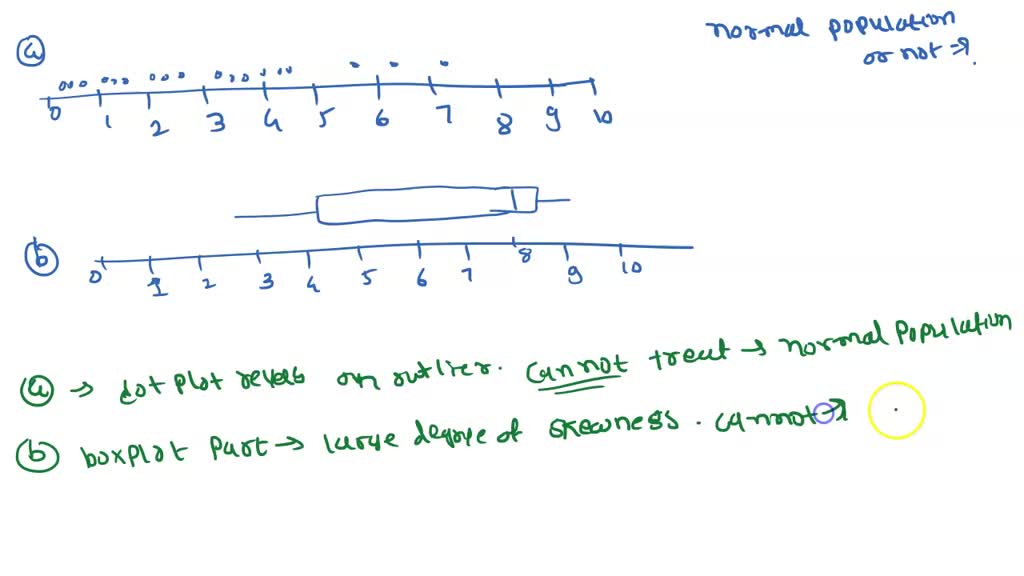 normal population
or not ⇒.
a
0 1 2 3 4 5 6 7 8 9 10
b
0 1 2 3 4 5 6 7 8 9 10
a → dotplot revels on outlier. Cannot treat → normal Population
b boxplot Part → large degree of skewness. cannot →